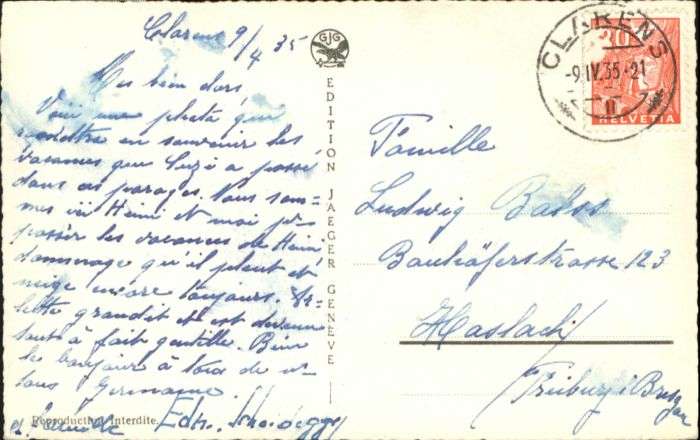 Clarens 9/4 35
Mes bien chers
Voici une photo qui
remettra en souvenir les
vacances que Suzi a passé
dans ces parages. Nous som-
mes ici Heini et moi p.
passer les vacances de Heini
dommage qu'il pleut et
neige encore toujours.
grandit et est devenue
tout à fait gentille. Bien
le bonjour à tous de n.
tous Germaine
Edm.
Reproduction Interdite
GJG
EDITION JAEGER GENÈVE
CLARENS
-9.IV.35-21
HELVETIA
Famille
Ludwig
Bauhöferstrasse 123
Haslach
Freiburg i/Brisgau